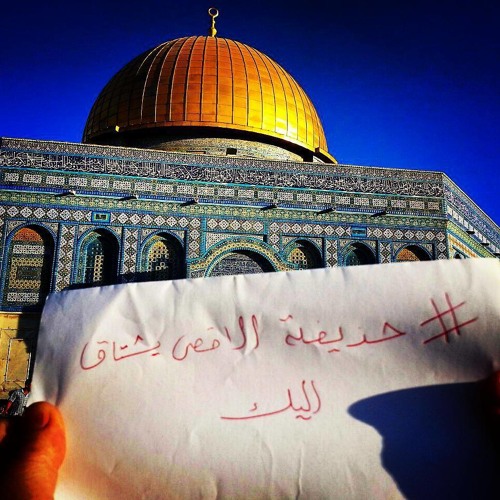 # حذيفة الاقصى يشتاق
اليك